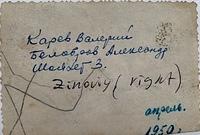 Карев Валерий
Белобров Александр
Шойхет З.
Zinoviy (right)
апрель.
1950 г.